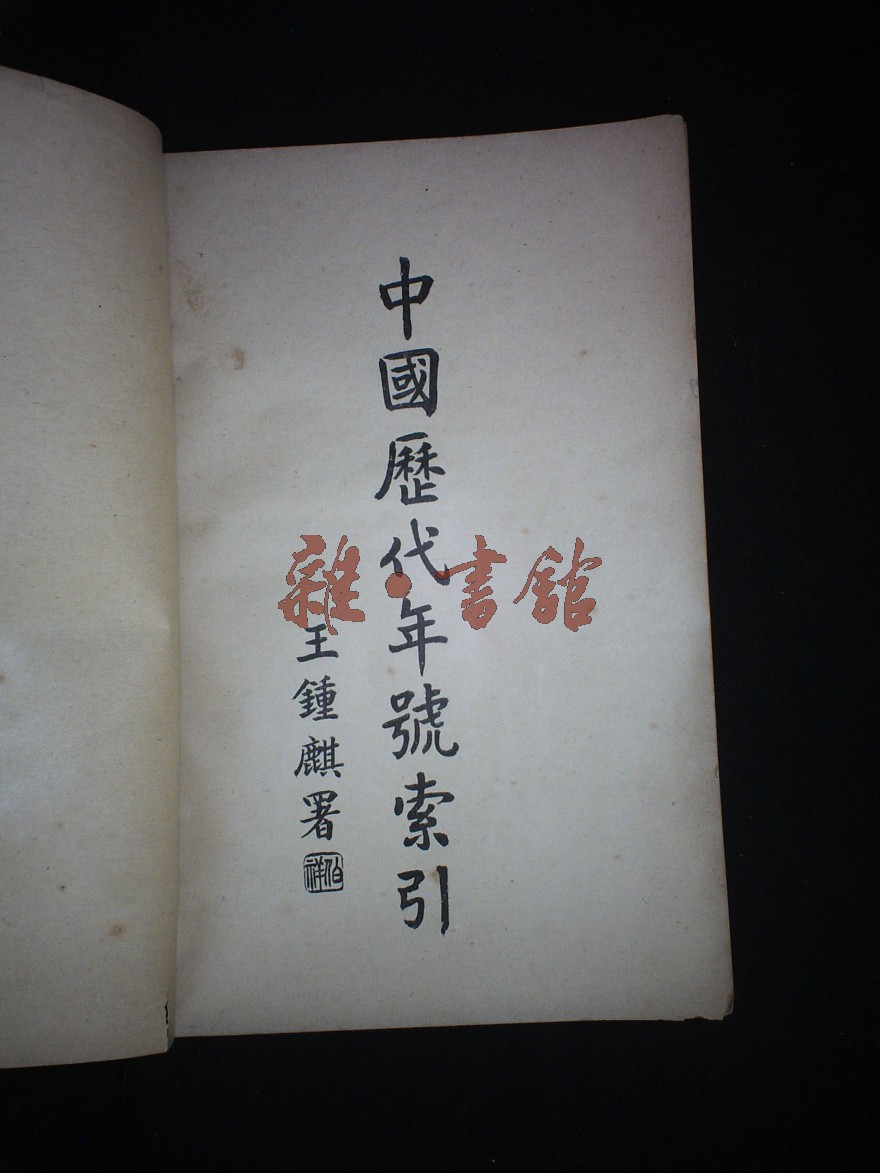 中國歷代年號索引
王鍾麒署
伯祥
雜·書館